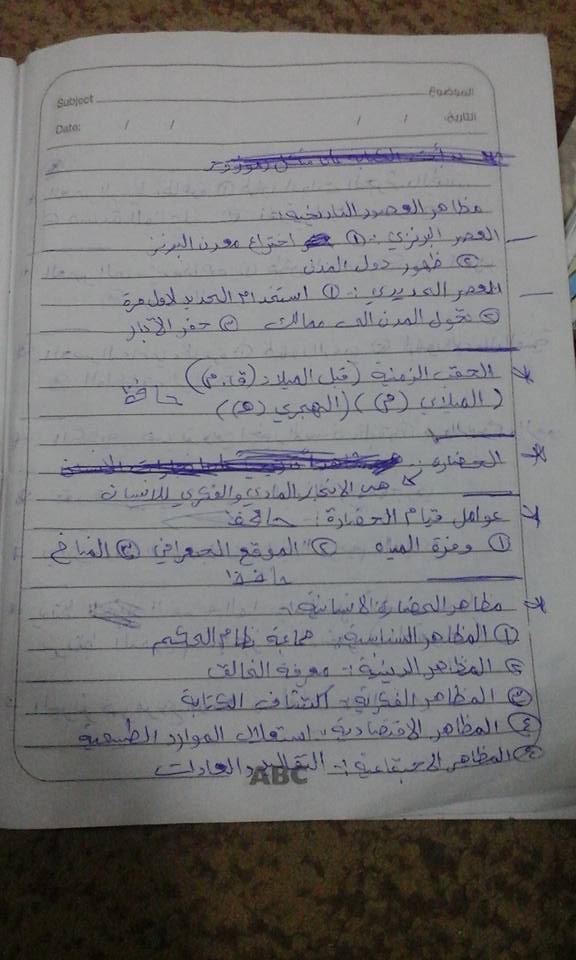 الموضوع Subject
التاريخ: / / Date: / /
مظاهر العصور التاريخية:
العصر البرنزي:- ① اختراع معدن البرنز
② ظهور دول المدن
العصر الحديدي:- ① استخدام الحديد لاول مرة
② تحول المدن الى ممالك ③ حفر الآبار
* الحقب الزمنية (قبل الميلاد (ق.م)
(الميلادي (م) ) (الهجري (هـ) ) حافظ
* الحضارة:
هي الانجاز المادي والفكري للانسان
* عوامل قيام الحضارة: حافظ
① وفرة المياه ② الموقع الجغرافي ③ المناخ
حافظ
* مظاهر الحضارة الانسانية:-
① المظاهر السياسية:- نظام الحكم
② المظاهر الدينية:- معرفة الخالق
③ المظاهر الفكرية:- اكتشاف الكتابة
④ المظاهر الاقتصادية:- استغلال الموارد الطبيعية
المظاهر الاجتماعية:- التقاليد والعادات
ABC